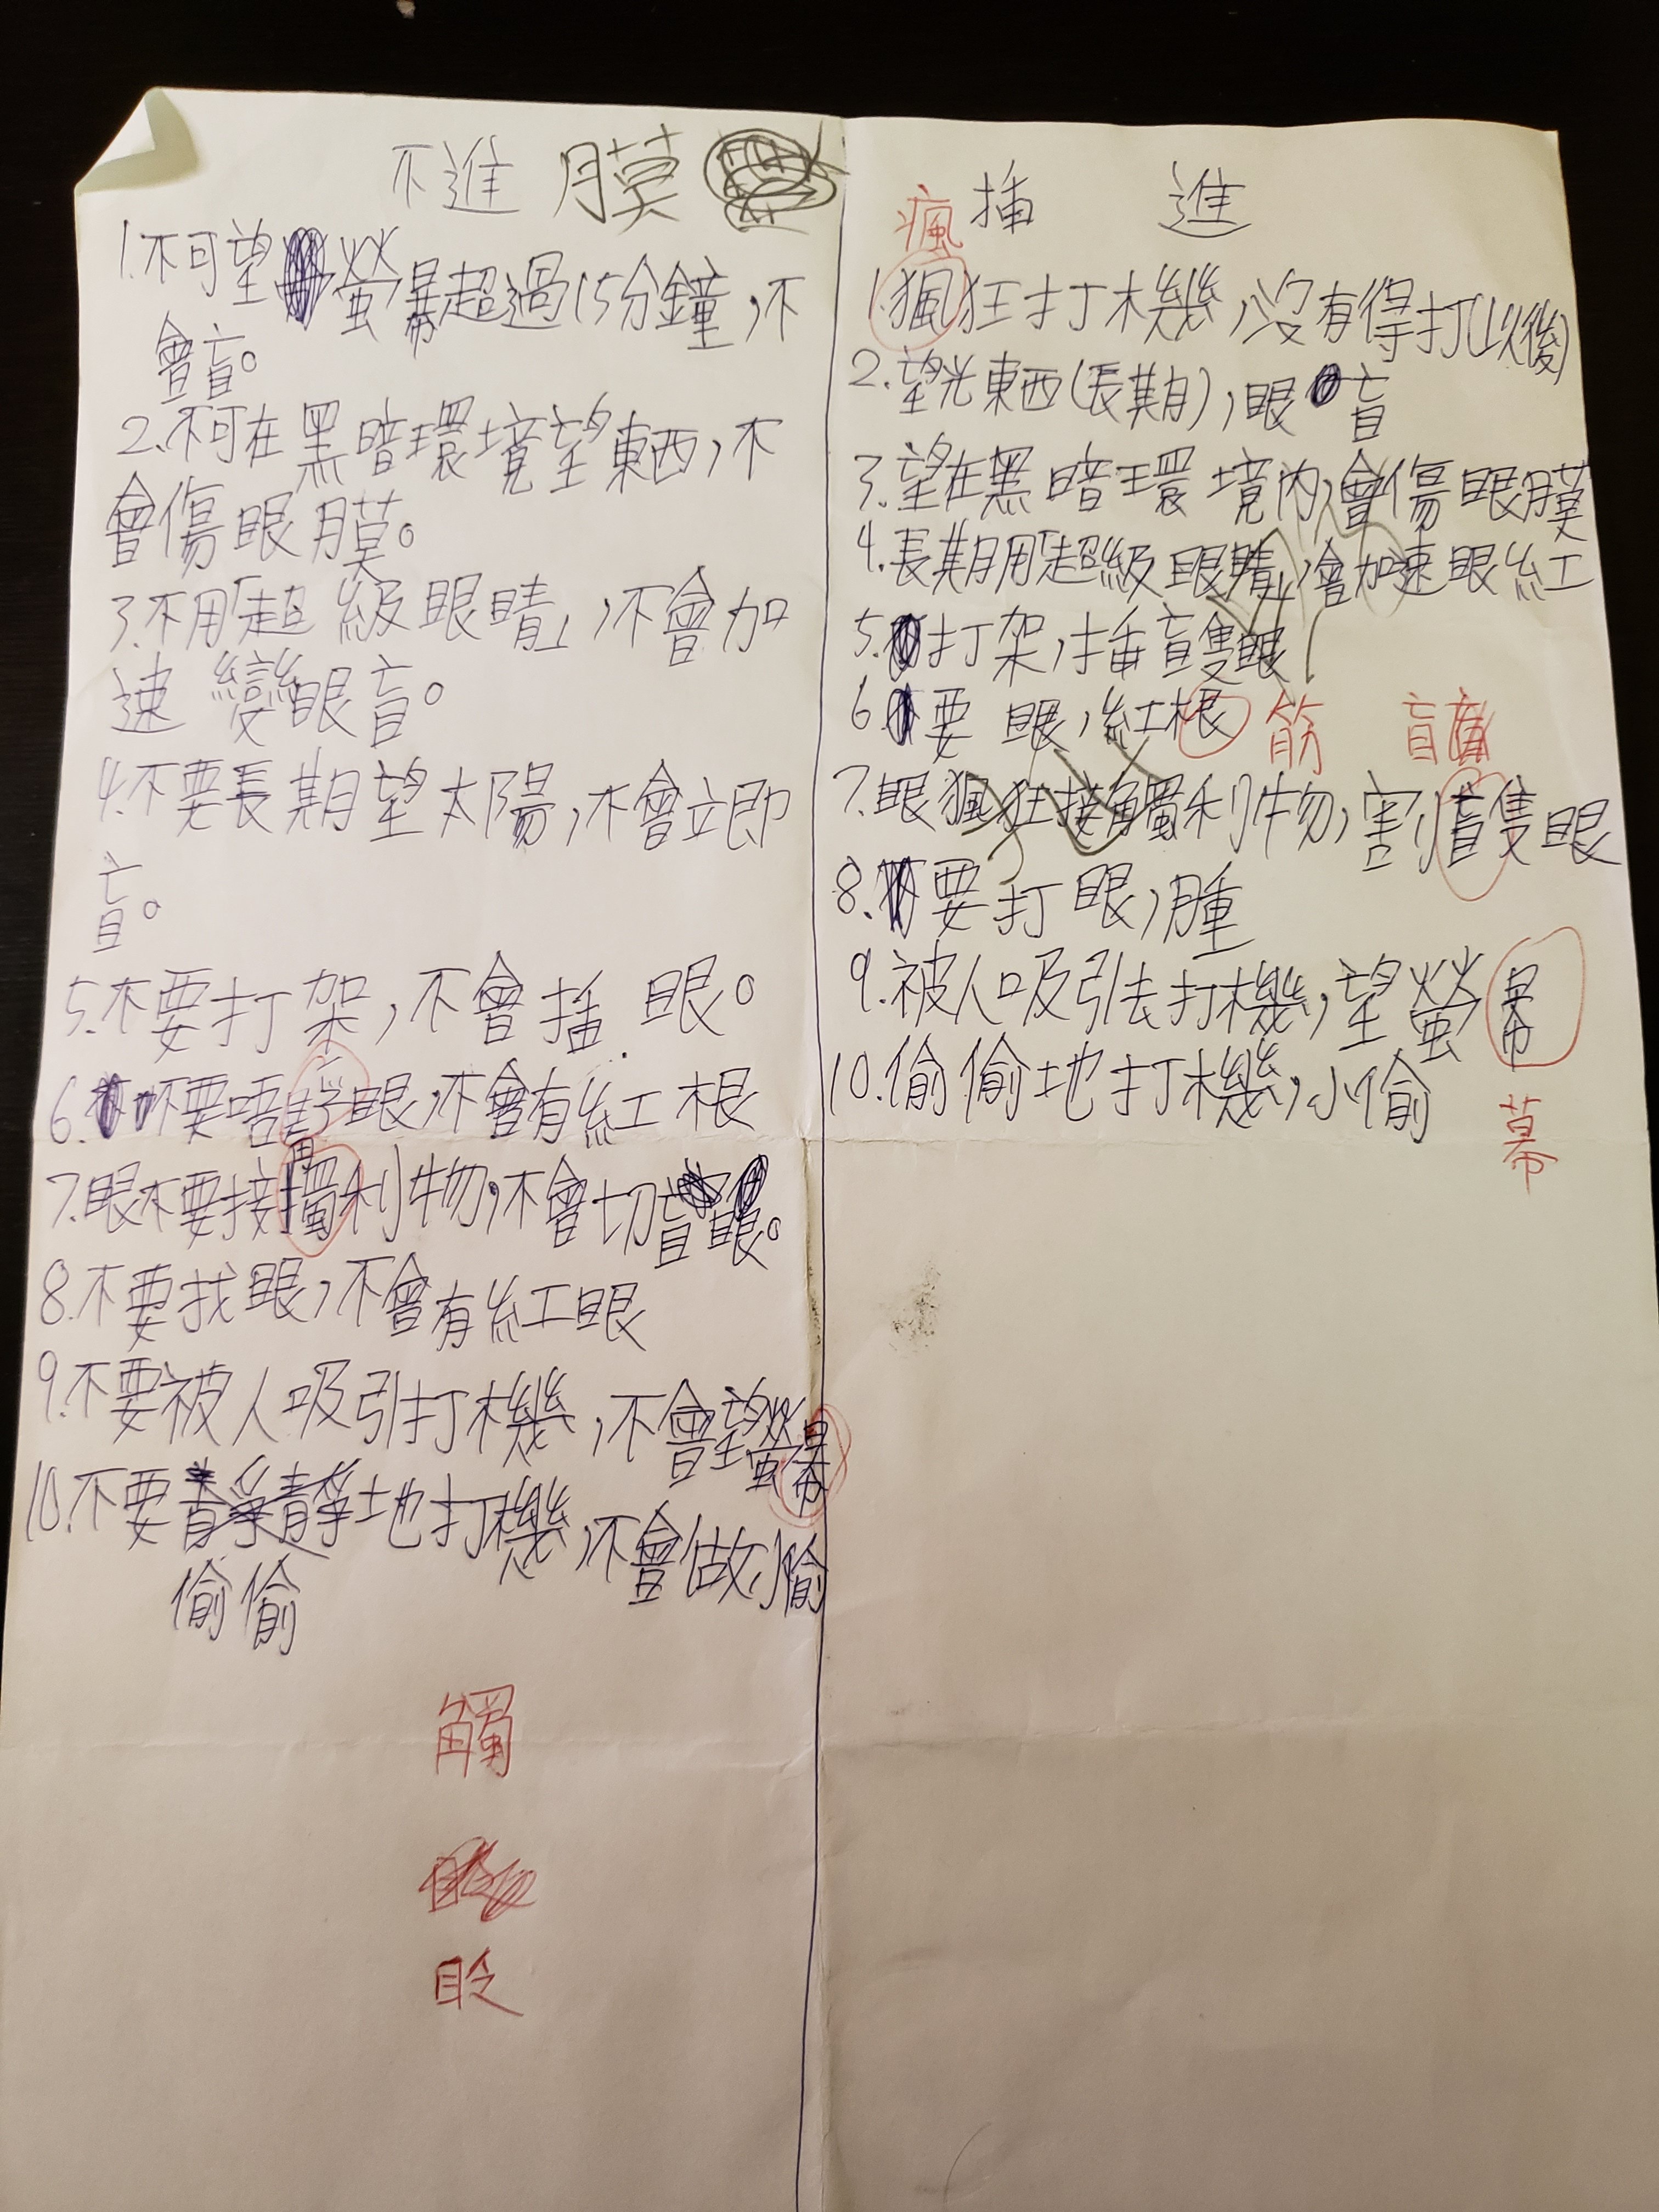 不進 膜
1.不可望螢幕超過15分鐘,不
會盲。
2.不可在黑暗環境望東西,不
會傷眼膜。
3.不用「超級眼睛」,不會加
速變眼盲。
4.不要長期望太陽,不會立即
盲。
5.不要打架,不會插眼。
6.不要唔眼,不會有紅根
7.眼不要接利物,不會切盲眼。
8.不要找眼,不會有紅眼
9.不要被人吸引打機,不會望螢幕
10.不要靜靜地打機,不會做小偷
偷偷
觸
眨
瘋 插 進
1.瘋狂打機,沒有得打(以後)
2.望光東西(長期),眼盲
3.望在黑暗環境內,會傷眼膜
4.長期用「超級眼睛」,會加速眼紅
5.打架,插盲隻眼
6.要眼,紅根 筋 盲
7.眼瘋狂接觸利物,割盲隻眼
8.要打眼,腫
9.被人吸引去打機,望螢幕
10.偷偷地打機,小偷
幕